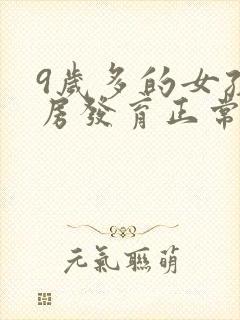 9歲多的女孩
房發育正常
元氣聯萌